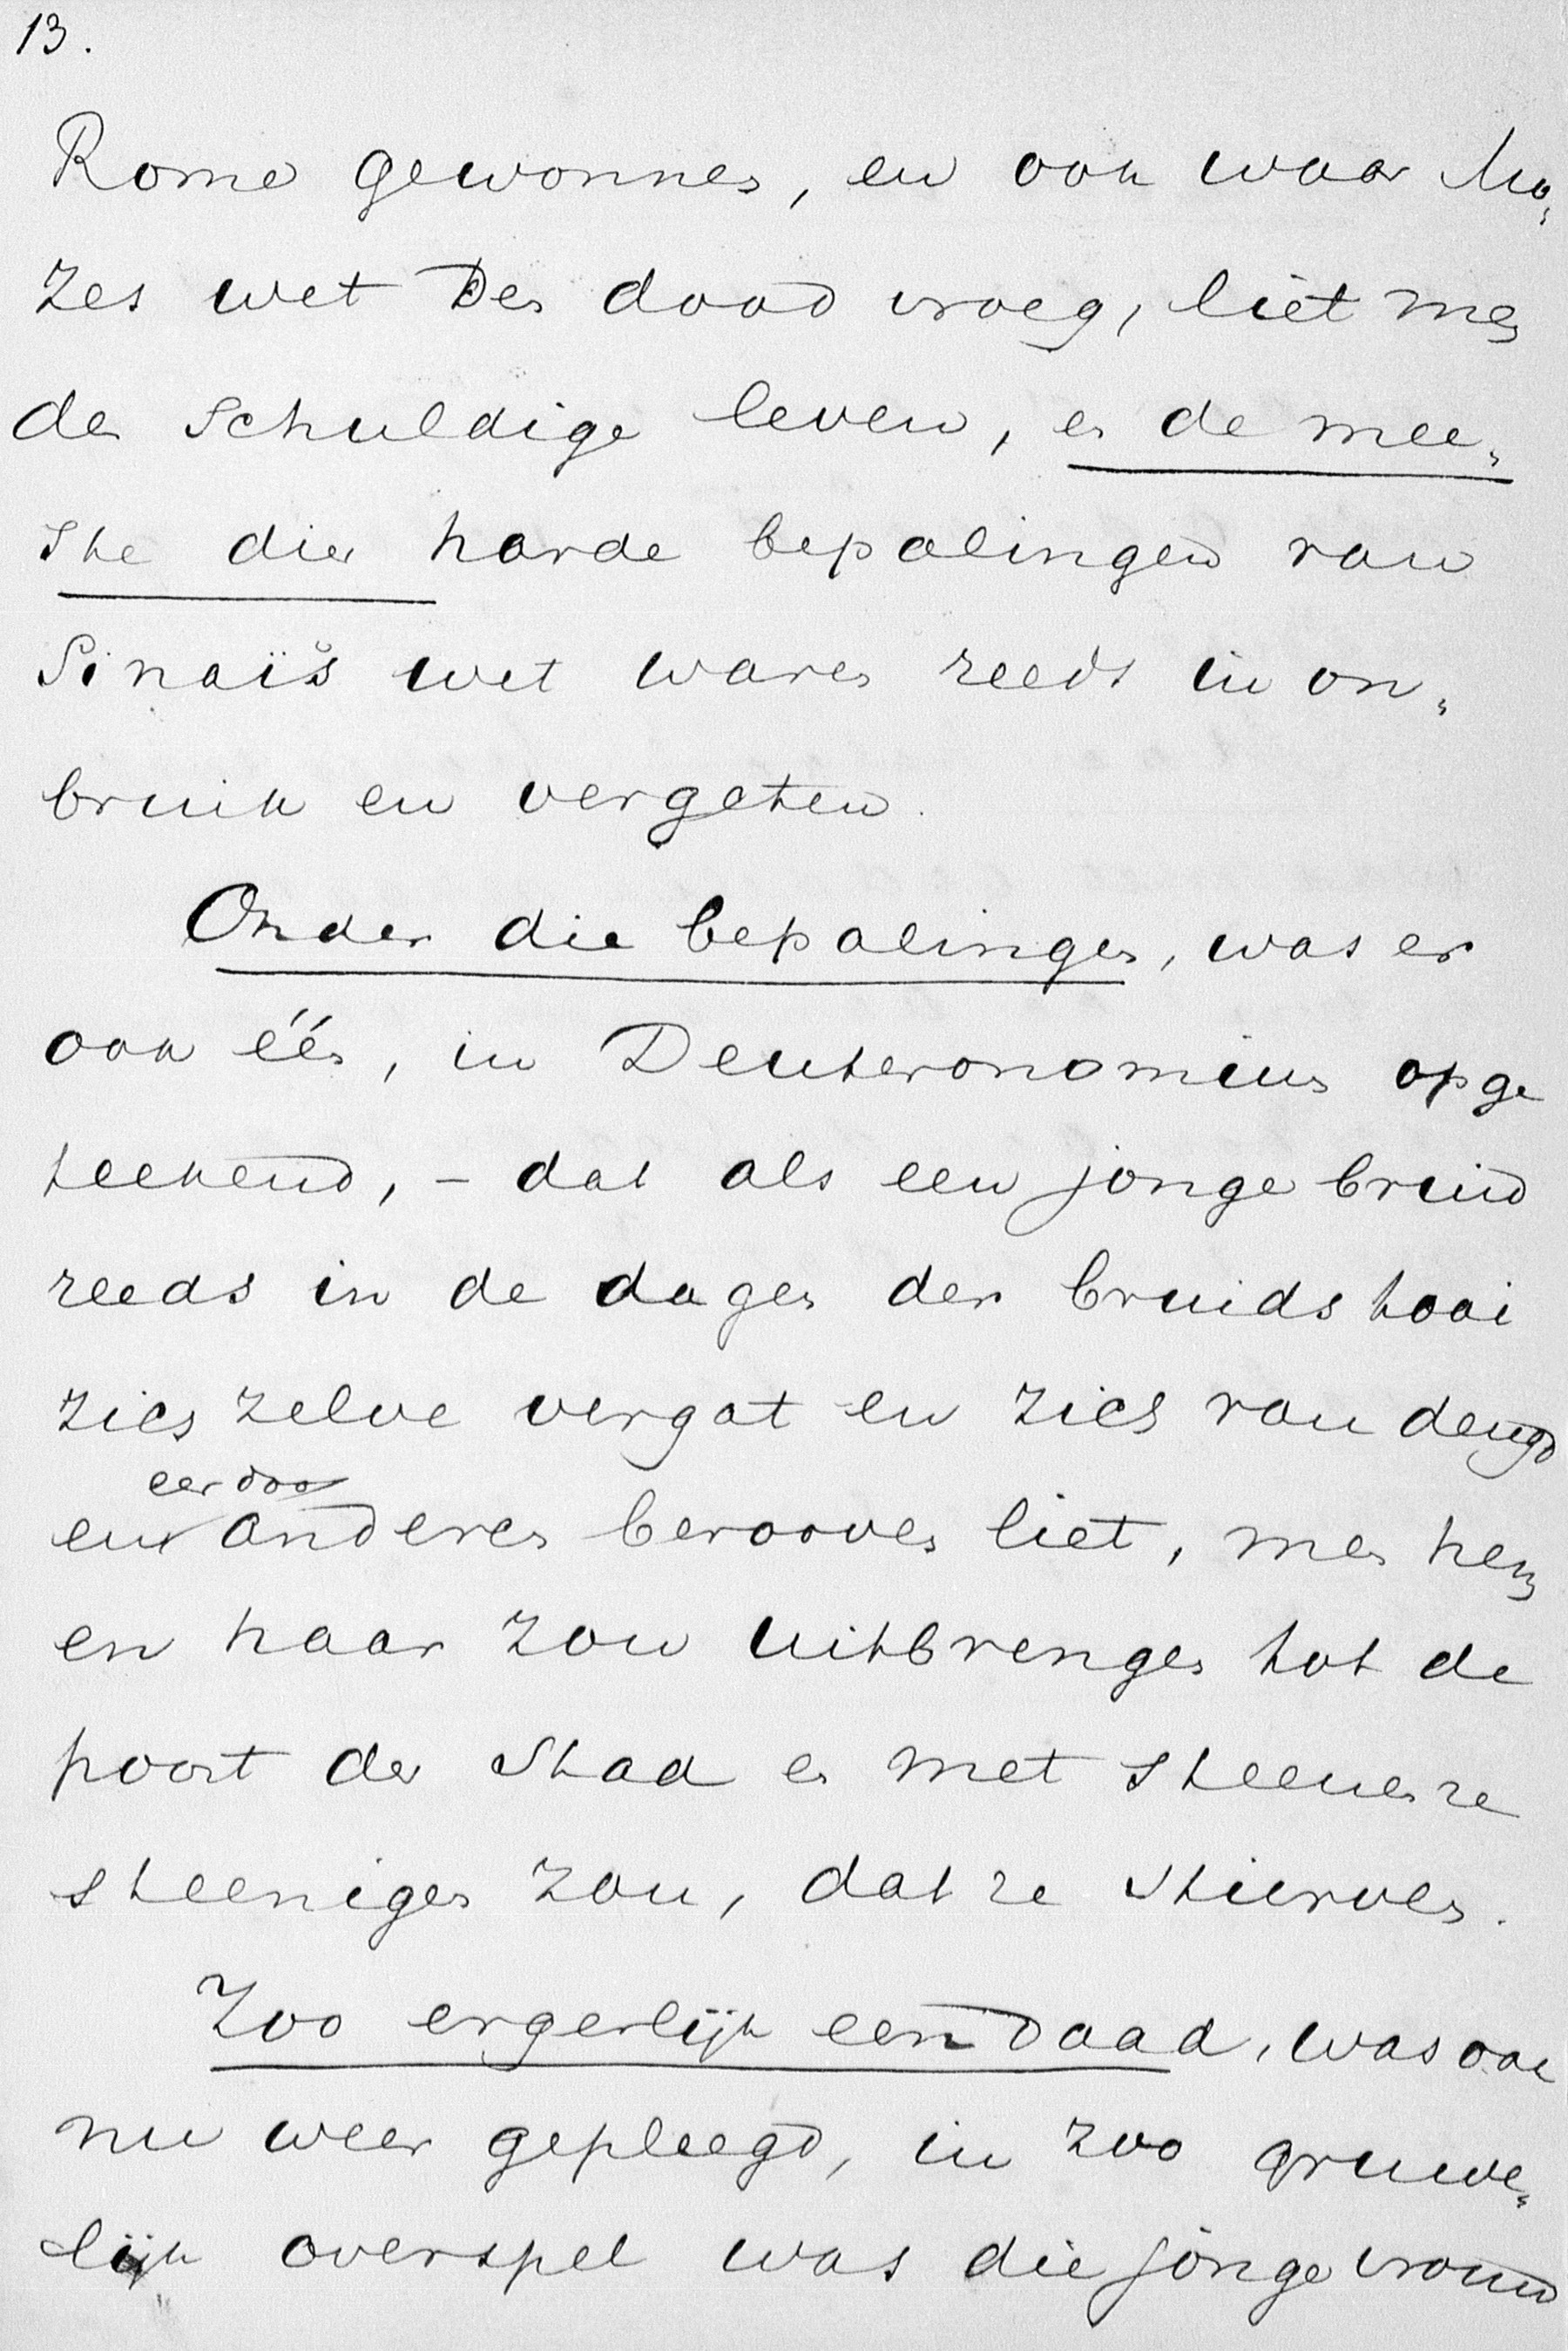 13.
Rome gewonnen, en ook waar Mo„
zes wet den dood vroeg, liet men
de schuldige leven, en de mee„
ste dier harde bepalingen van
Sinaïs wet waren reeds in on„
bruik en vergeten.
Onder die bepalingen, was er
ook één, in Deuteronomium opge
teekend, – dat als een jonge bruid
reeds in de dagen der bruidstooi
zich zelve vergat en zich van deugd
eer door
en anderen berooven liet, men hem
en haar zou uitbrengen tot de
poort der stad en met steenen ze
steenigen zou, dat ze stierven.
Zoo ergerlijk een daad, was ook
nu weer gepleegd, in zoo gruwe„
lijk overspel was die jonge vrouw